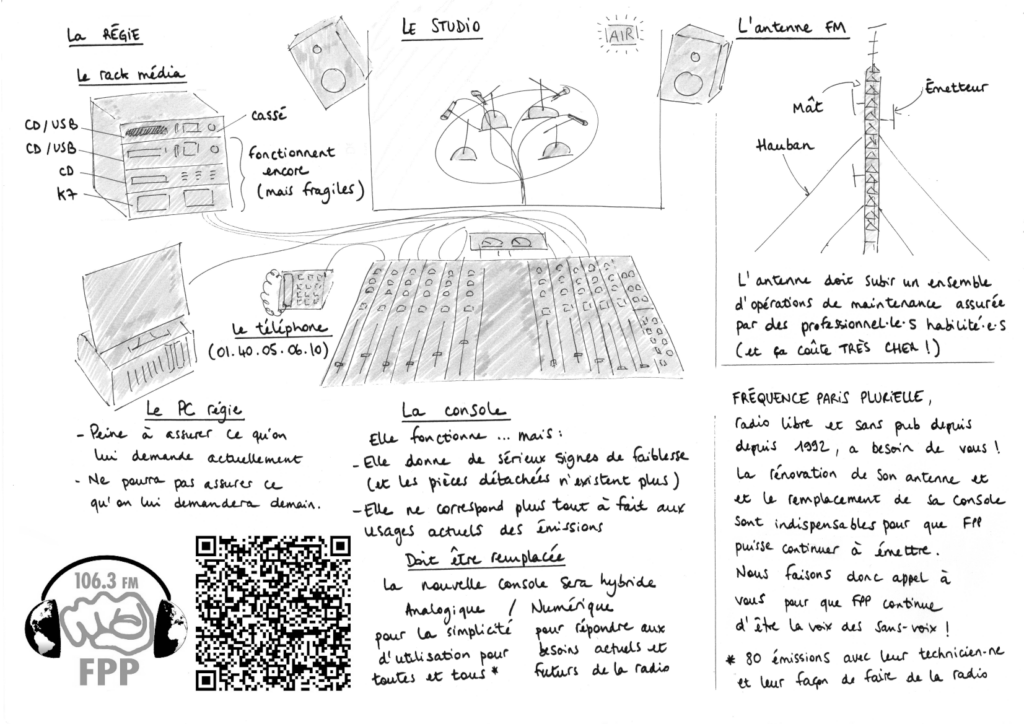 La RÉGIE
Le rack média
CD/USB
CD/USB
CD
K7
cassé
fonctionnent
encore
(mais fragiles)
LE STUDIO
AIR
L'antenne FM
Mât
Émetteur
Hauban
L'antenne doit subir un ensemble
d'opérations de maintenance assurée
par des professionnel·le·s habilité·e·s
(et ça coûte TRÈS CHER !)
Le téléphone
(01.40.05.06.10)
Le PC régie
- Peine à assurer ce qu'on
lui demande actuellement
- Ne pourra pas assurer ce
qu'on lui demandera demain.
La console
Elle fonctionne ... mais :
- Elle donne de sérieux signes de faiblesse
(et les pièces détachées n'existent plus)
- Elle ne correspond plus tout à fait aux
usages actuels des émissions
Doit être remplacée
La nouvelle console sera hybride
Analogique / Numérique
pour la simplicité
d'utilisation pour
toutes et tous *
pour répondre aux
besoins actuels et
futurs de la radio
FRÉQUENCE PARIS PLURIELLE,
radio libre et sans pub depuis
depuis 1992, a besoin de vous !
La rénovation de son antenne et
et le remplacement de sa console
sont indispensables pour que FPP
puisse continuer à émettre.
Nous faisons donc appel à
vous pour que FPP continue
d'être la voix des sans-voix !
* 80 émissions avec leur technicien-ne
et leur façon de faire de la radio
106.3 FM
FPP